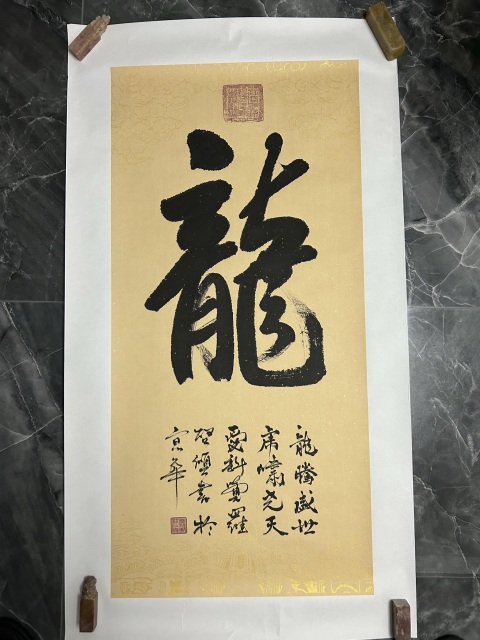 龍
龍騰盛世
虎嘯堯天
愛新覺羅
書於
京華